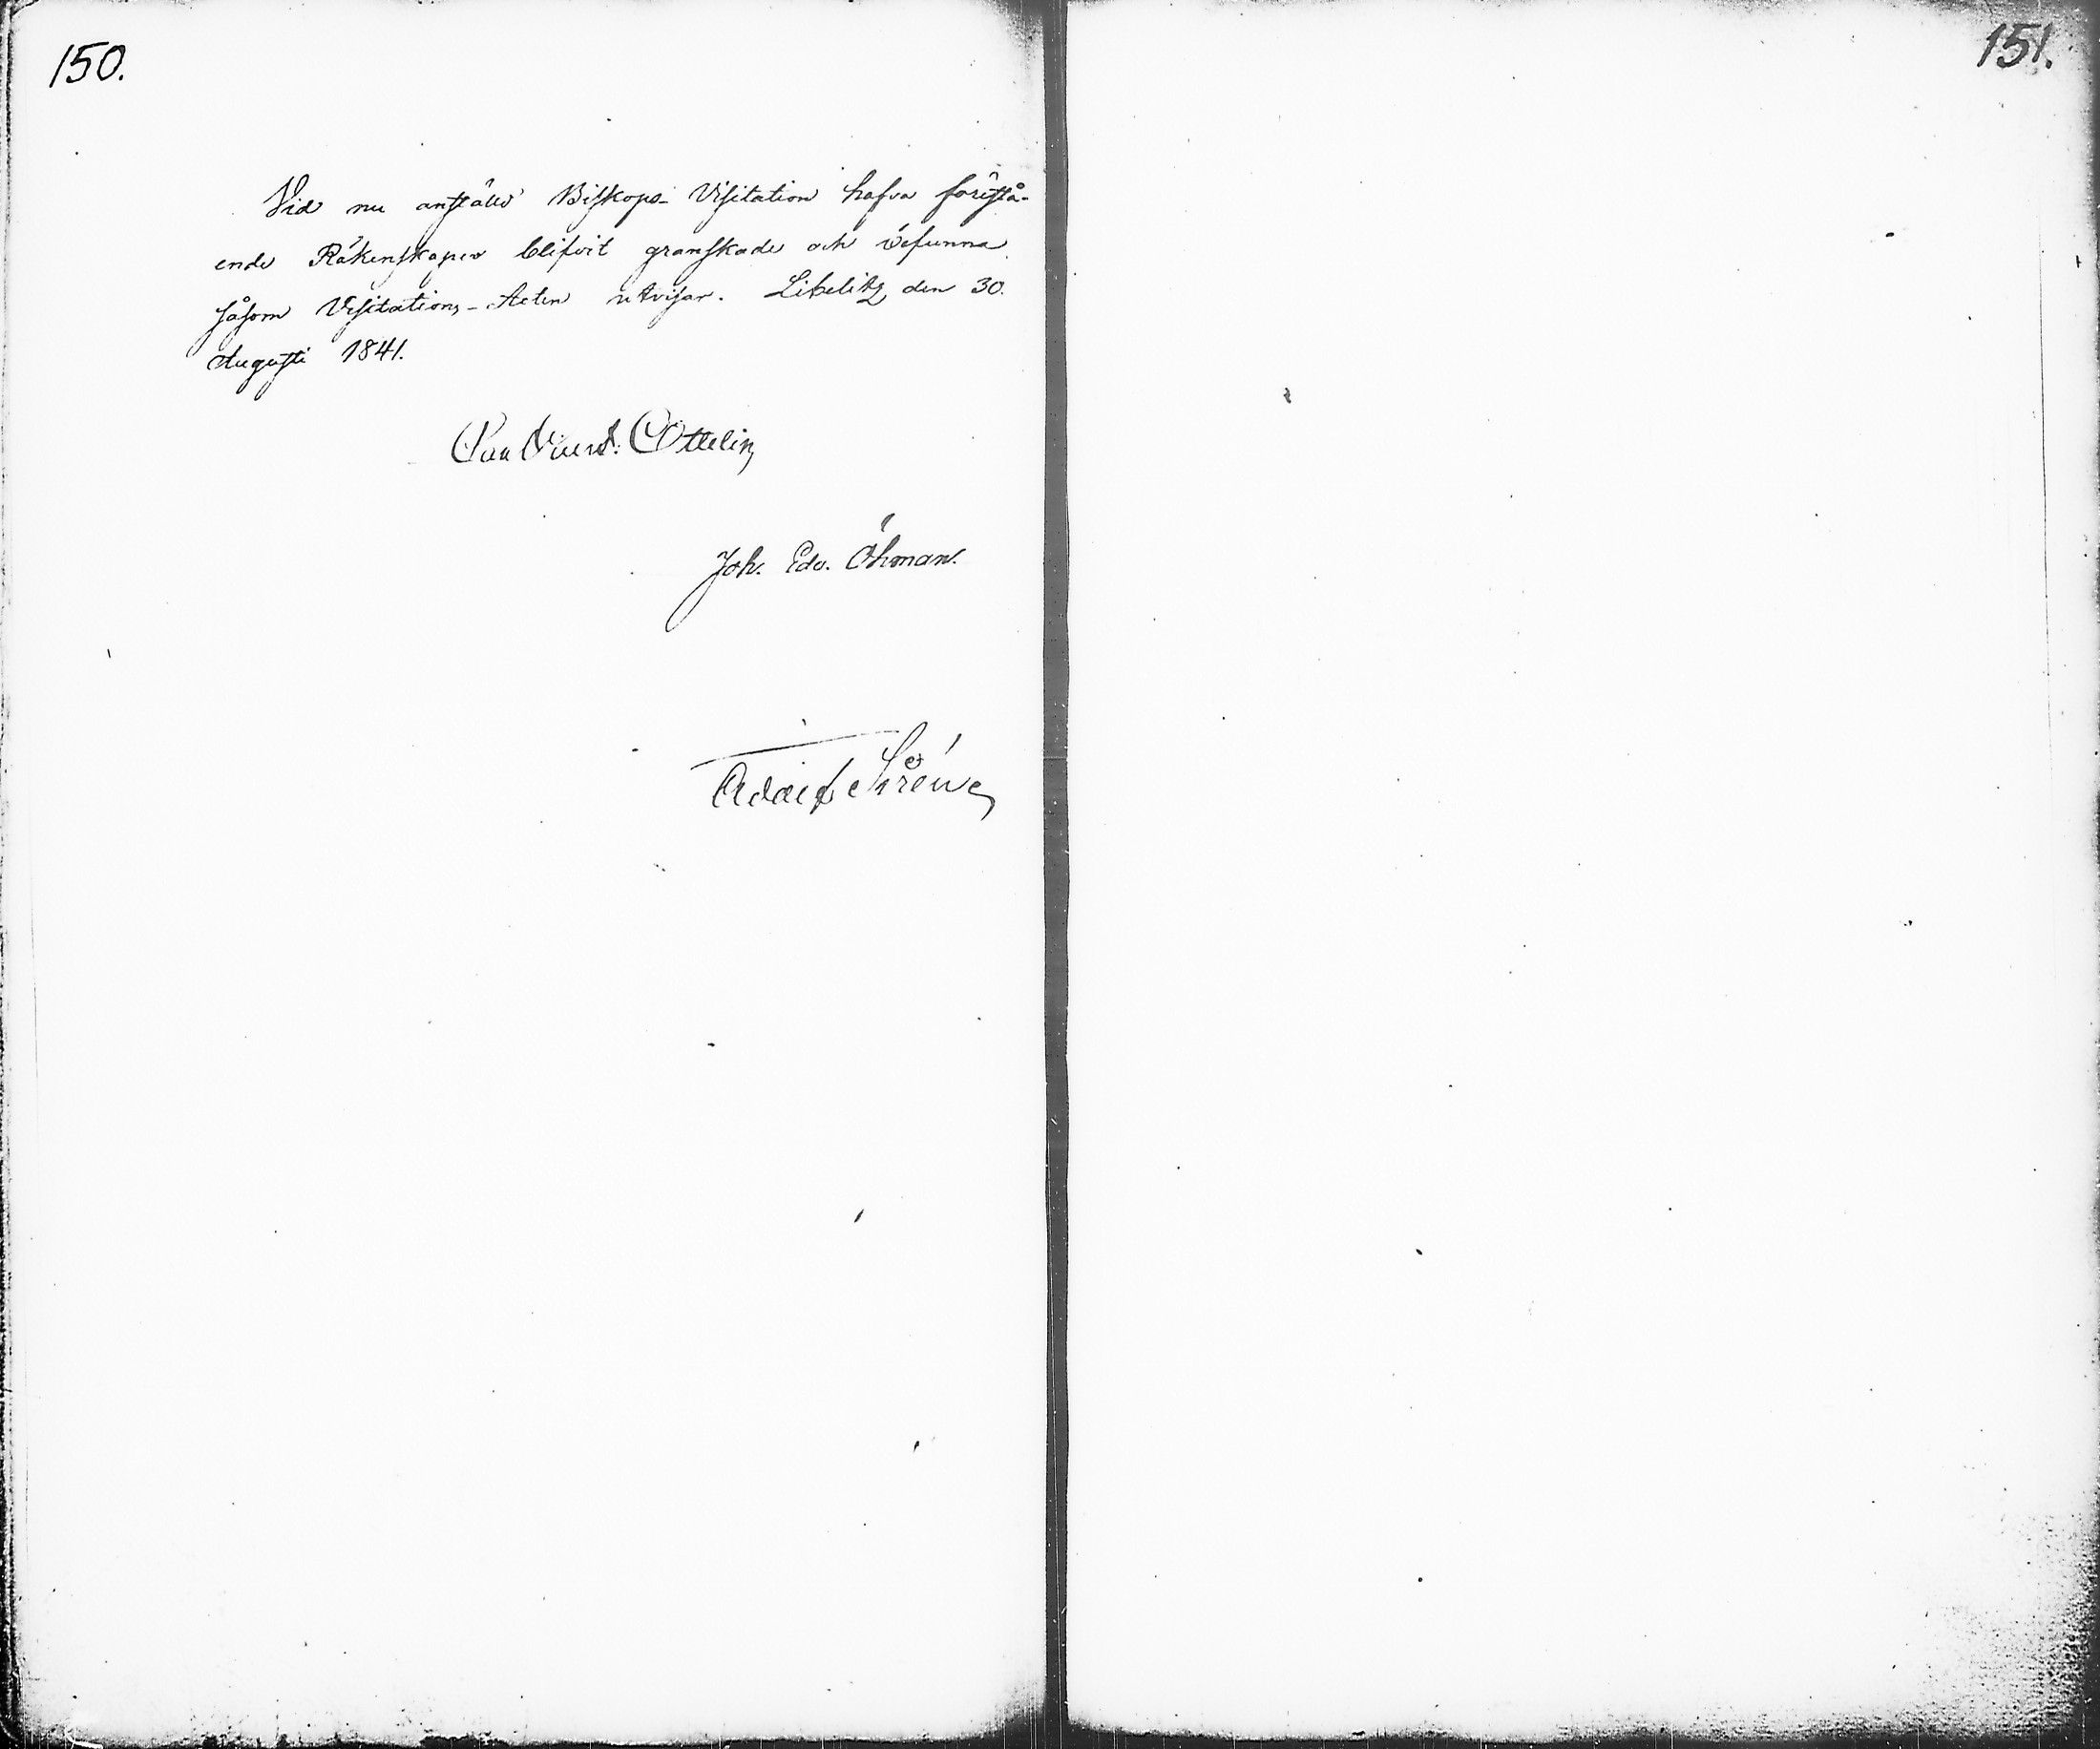 150.
151.
Vid nu anstäld Biskops-Visitation hafva förestå-
ende Räkenskaper blifvit granskade och befunna
såsom Visitations-Acten utvisar. Libelitz den 30.
Augusti 1841.
Ottelin
Joh. Edv. Öhman.
Adolf